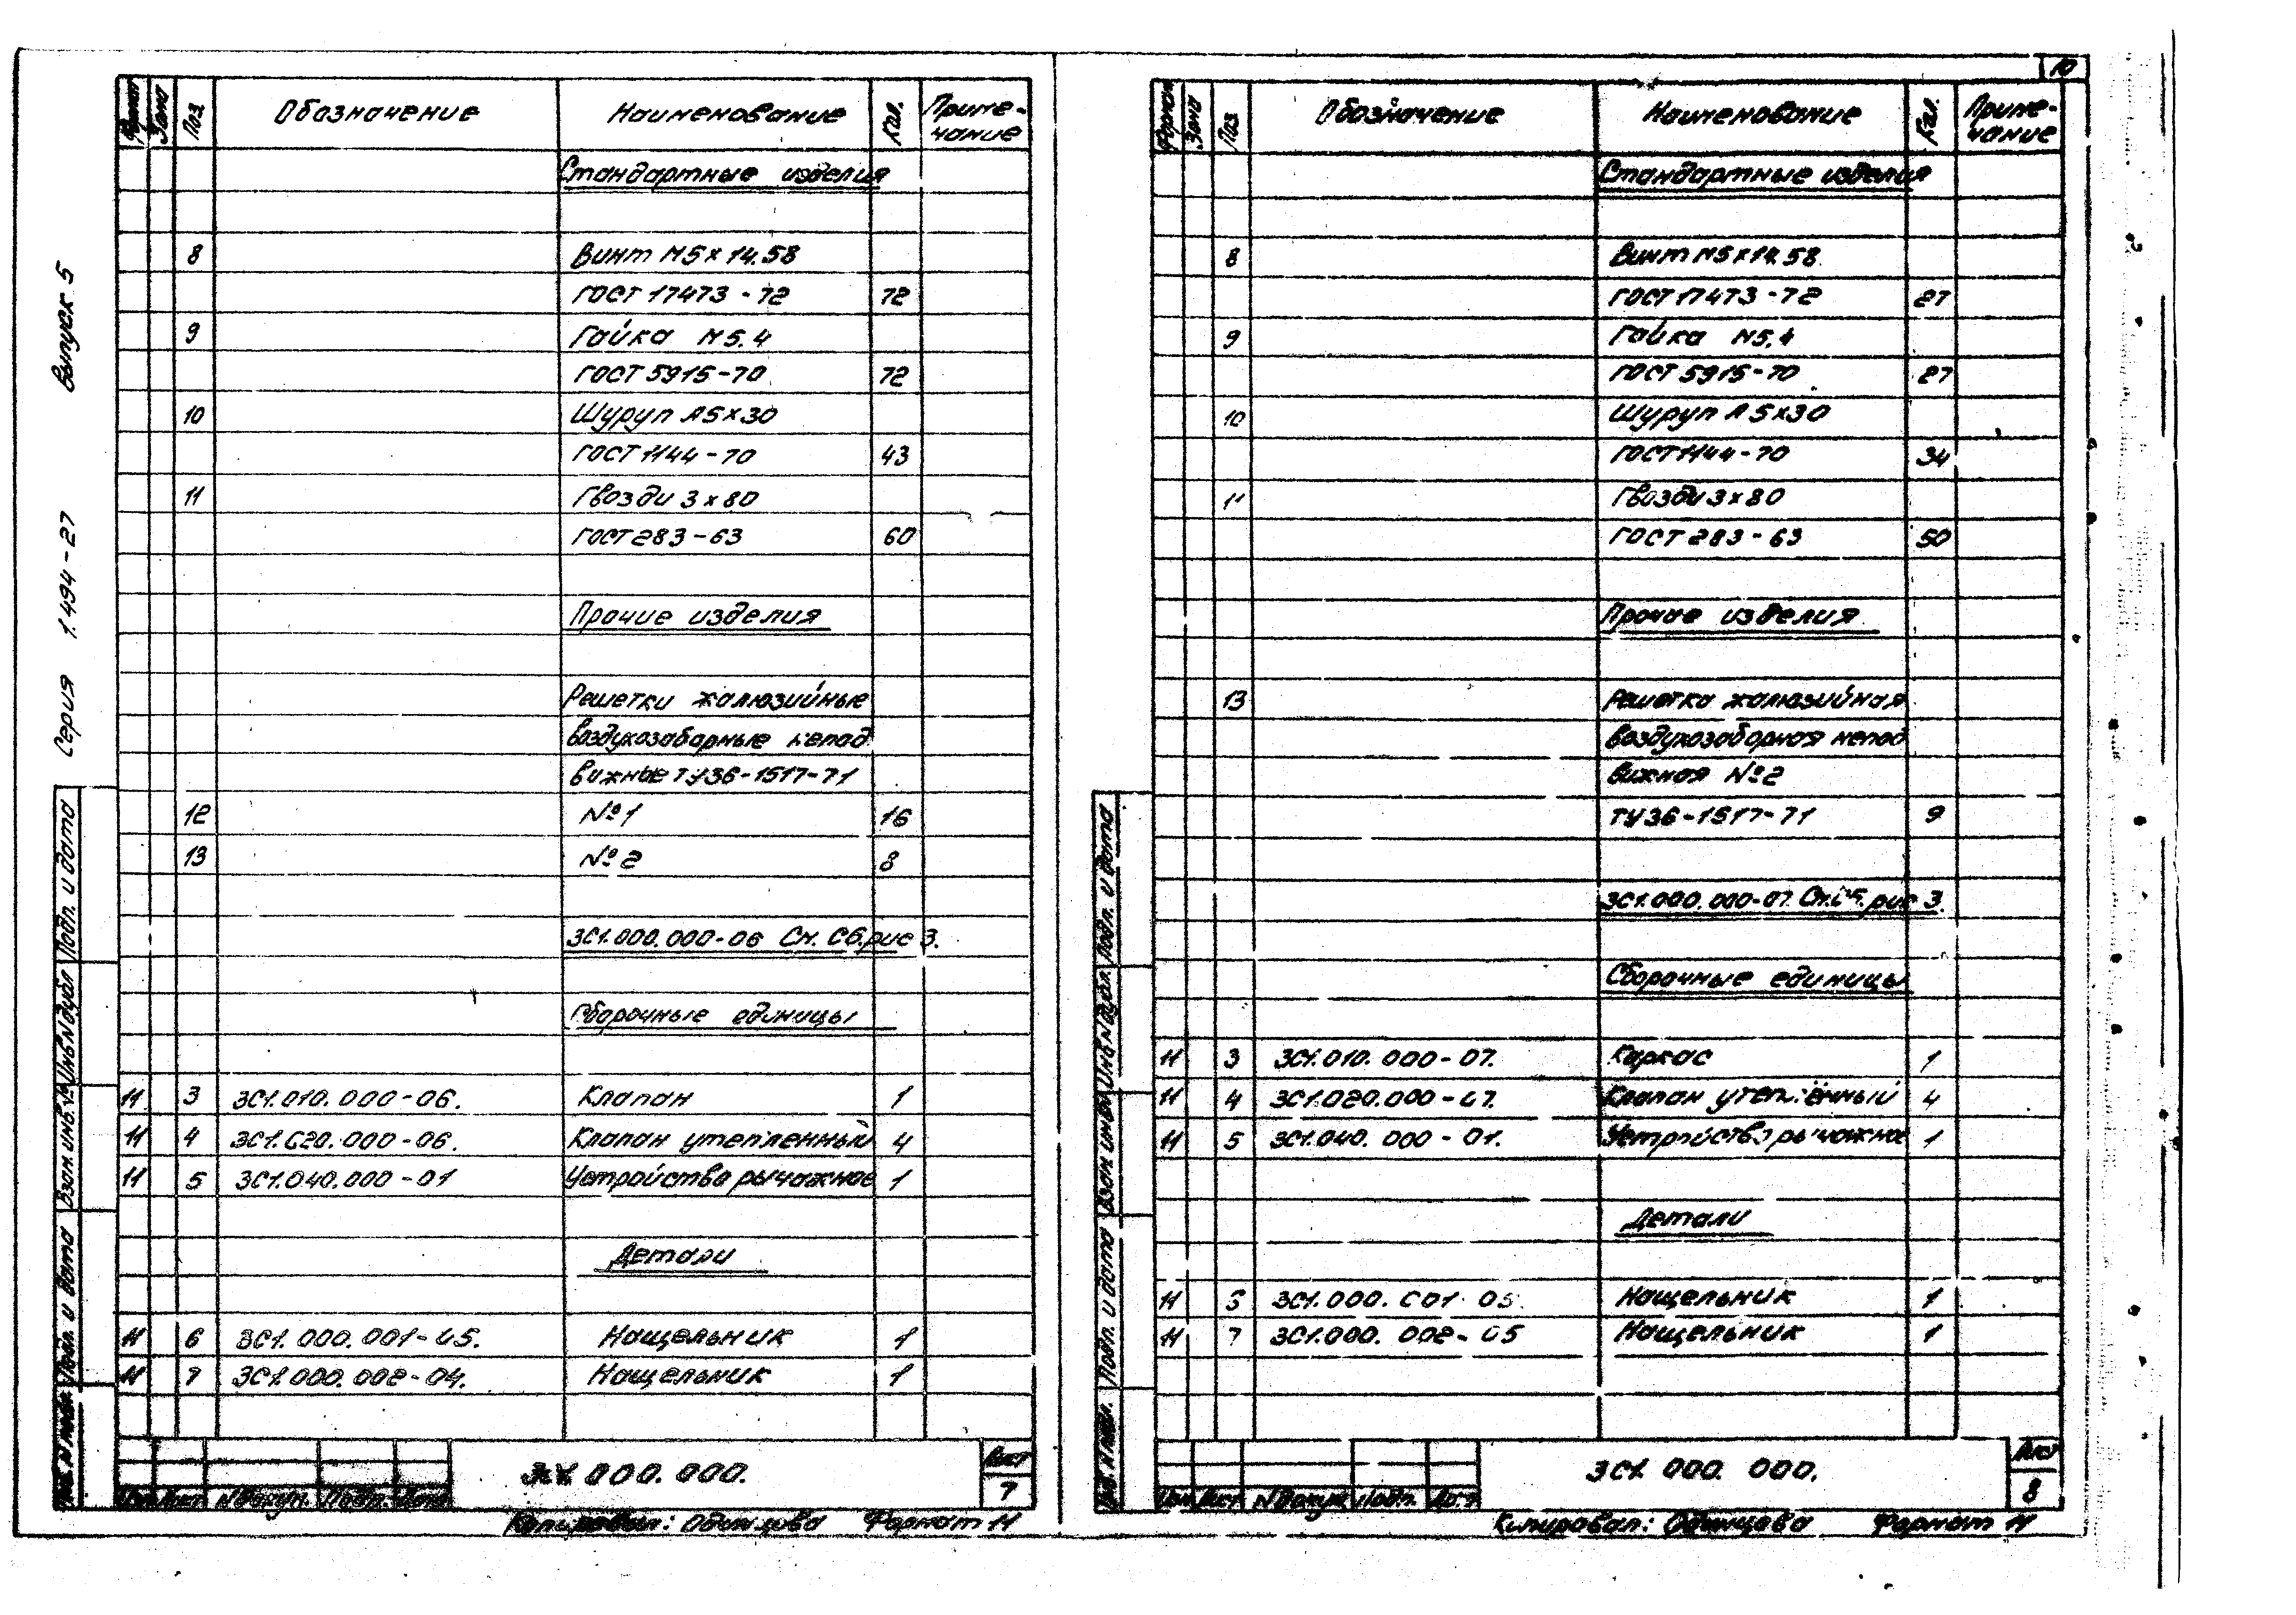 Серия 1.494-27 Выпуск 5
Формат Зона Поз. Обозначение Наименование Кол. Приме-
чание
Стандартные изделия
8 Винт М5х14.58
ГОСТ 17473-72 72
9 Гайка М5.4
ГОСТ 5915-70 72
10 Шуруп А5х30
ГОСТ 1144-70 43
11 Гвозди 3х80
ГОСТ 283-63 60
Прочие изделия
Решетки жалюзийные
воздухозаборные непод
вижные ТУ36-1517-71
12 №1 16
13 №2 8
3С1.000.000-06 См. Сб. рис 3.
Сборочные единицы
11 3 3С1.010.000-06. Клапан 1
11 4 3С1.020.000-06. Клапан утепленный 4
11 5 3С1.040.000-01 Устройство рычажное 1
Детали
11 6 3С1.000.001-05. Нащельник 1
11 7 3С1.000.002-04. Нащельник 1
Подп. и дата
Взам. инв. № Инв. № дубл. Подп. и дата
3С1.000.000.
Лист
7
Изм Лист № докум. Подп. Дата
Копировал: Одинцова Формат 11
10
Формат Зона Поз. Обозначение Наименование Кол. Приме-
чание
Стандартные изделия
8 Винт М5х14.58
ГОСТ 17473-72 27
9 Гайка М5.4
ГОСТ 5915-70 27
10 Шуруп А5х30
ГОСТ 1144-70 34
11 Гвозди 3х80
ГОСТ 283-63 50
Прочие изделия
13 Решетка жалюзийная
воздухозаборная непод
вижная №2
ТУ36-1517-71 9
3С1.000.000-07. См. Сб. рис 3.
Сборочные единицы
11 3 3С1.010.000-07. Каркас 1
11 4 3С1.020.000-07. Клапан утеплённый 4
11 5 3С1.040.000-01. Устройство рычажное 1
Детали
11 6 3С1.000.001-05. Нащельник 1
11 7 3С1.000.002-05 Нащельник 1
Подп. и дата
Взам. инв. № Инв. № дубл. Подп. и дата
3С1.000.000.
Лист
8
Изм Лист № докум. Подп. Дата
Копировал: Одинцова Формат 11